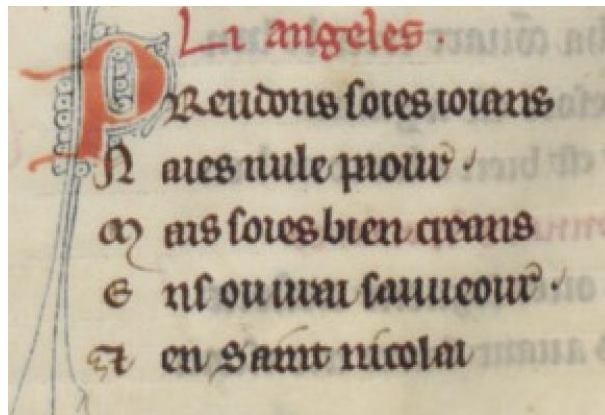 Li angeles.
PReudons ſoies ioians
N aies nule paour.
M ais ſoies bien creans
E nſ ou urai ſauueour.
Et en Saint nicolai